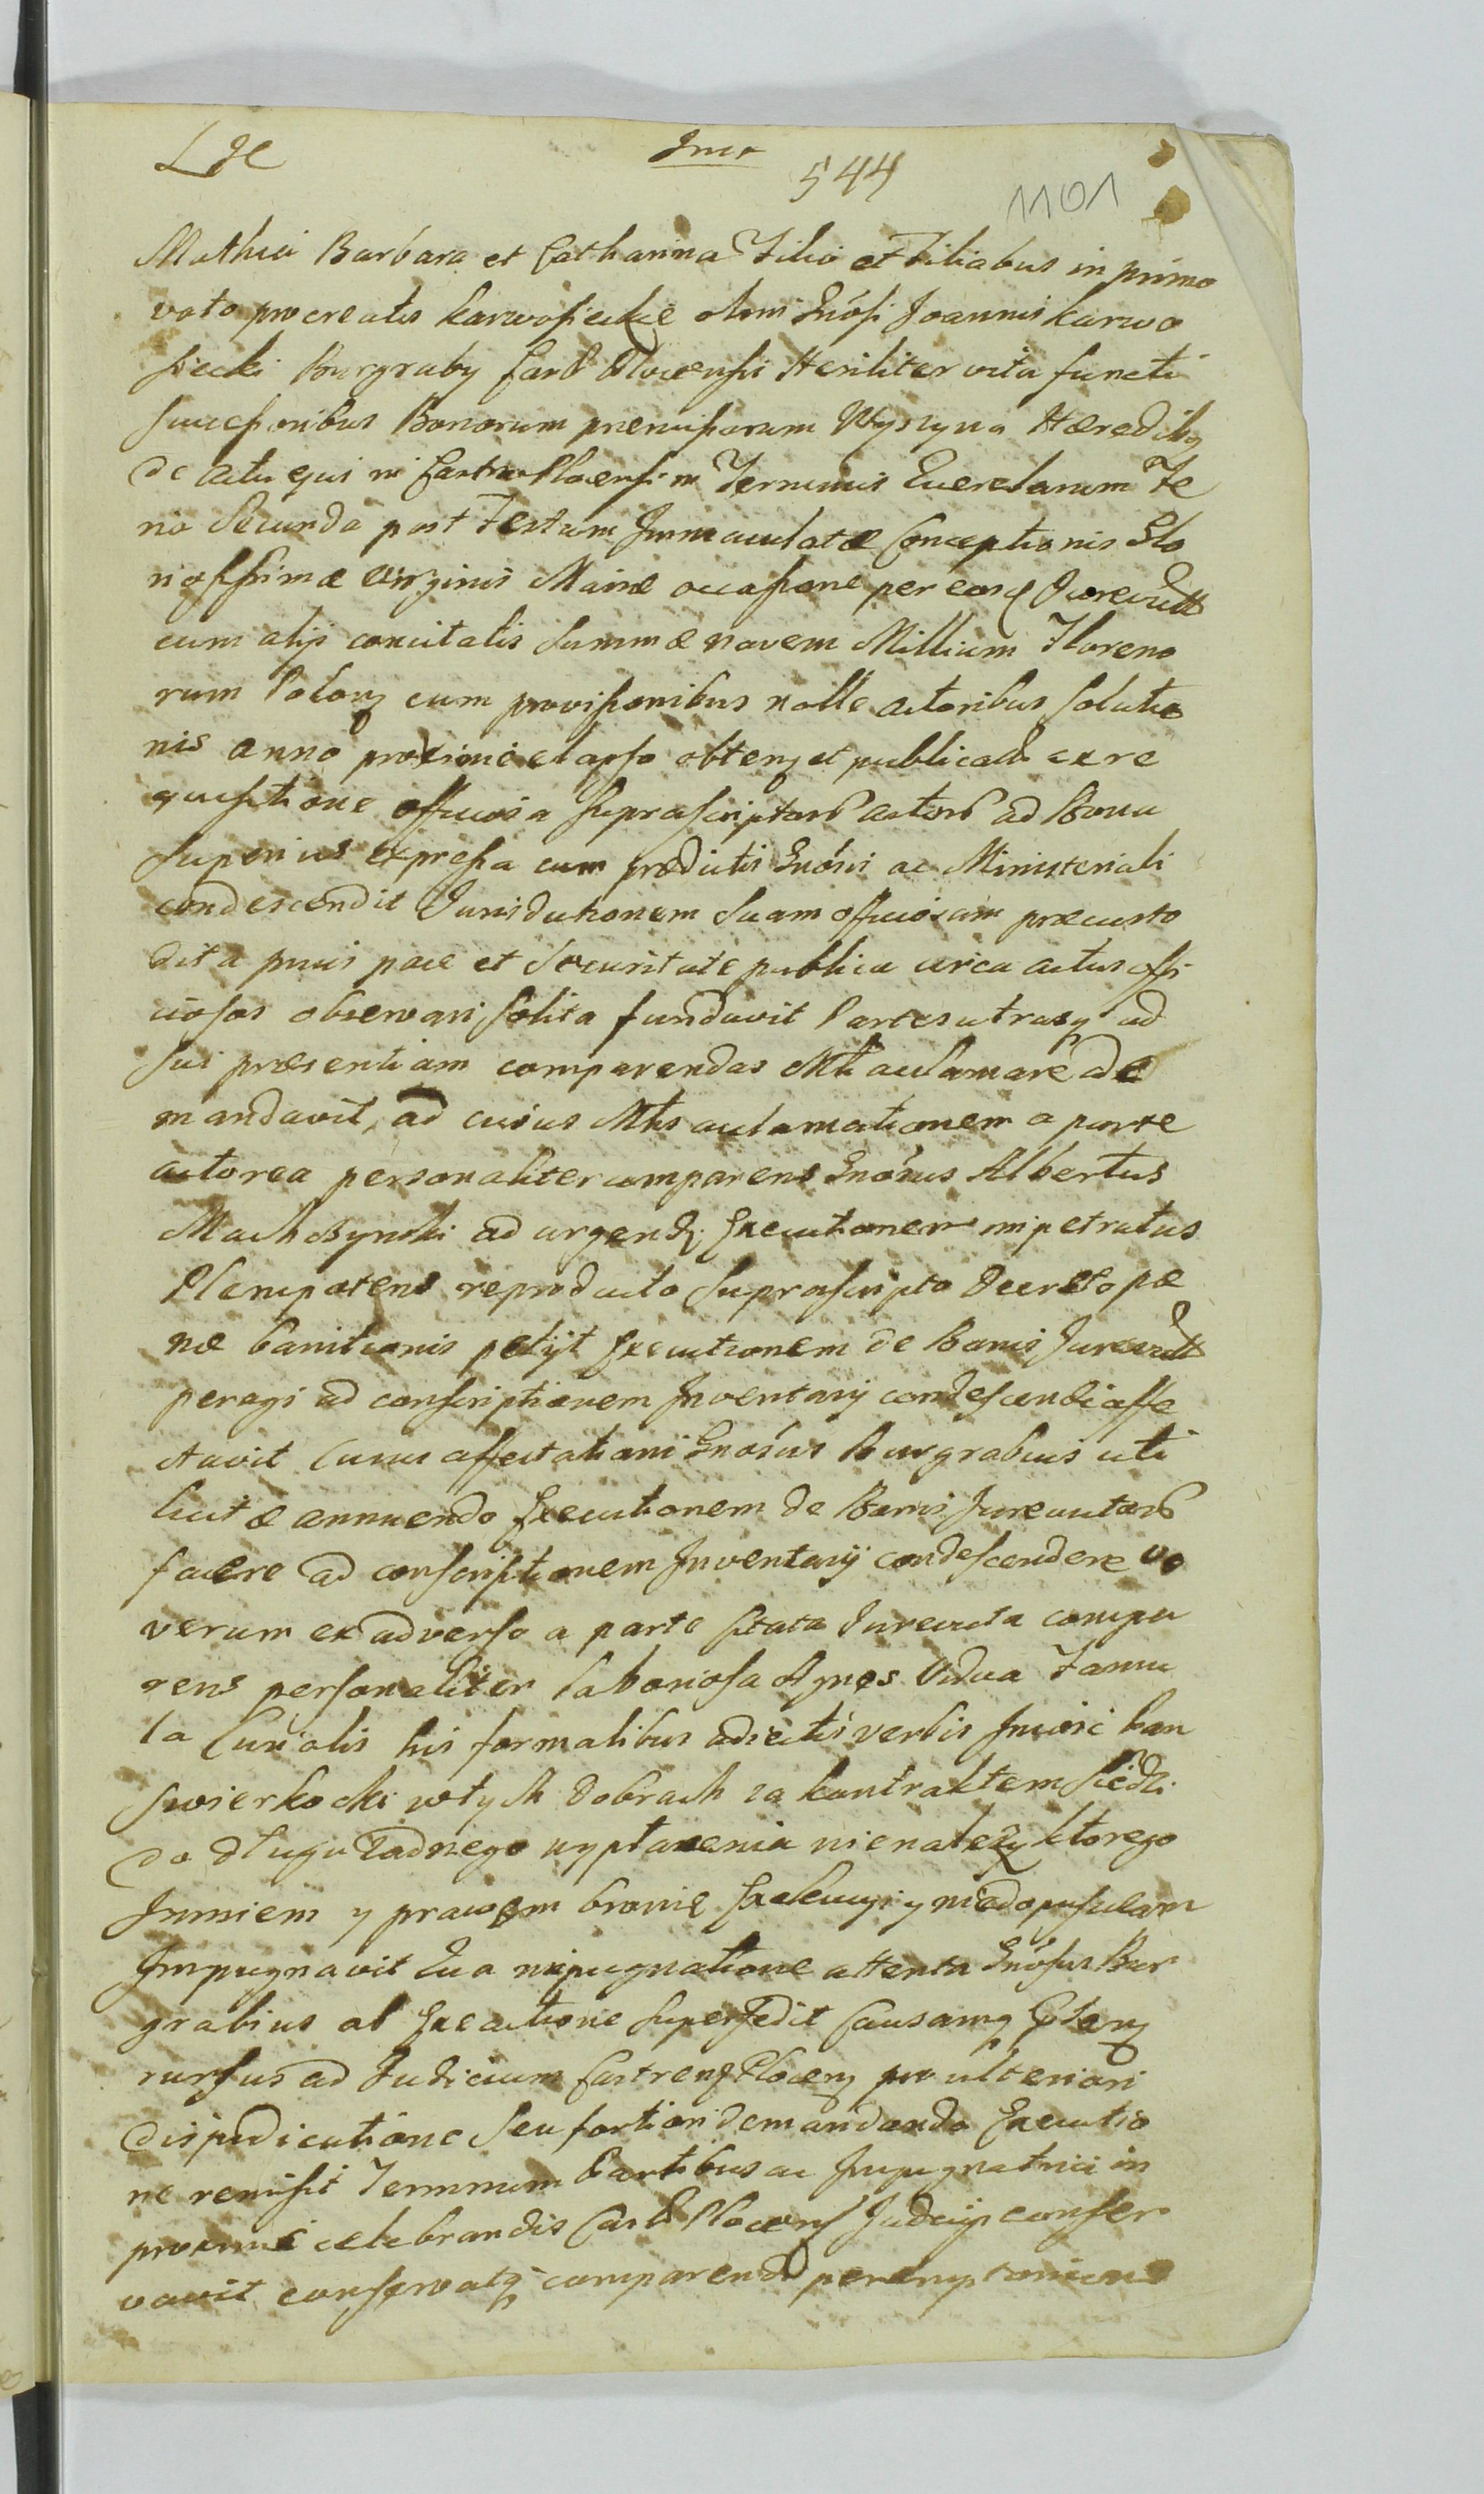 Lge Inca
544 1101
Mathia Barbara et Catharina Filio et Filiabus in primo
voto procreatis karwosieckie olim Gnosi Joannis karwo
siecki Burgraby Cast Plocensis Steriliter vita functi
successoribus Bonorum premissorum Wyszyna Hæredibq
de actu ejus in Castro Plocensi in Terminis Querelarum Fe
ria Secunda post Festum Immaculatæ Conceptionis Glo
riosissimæ Virginis Mariæ occasione per eosq Jurevictt
cum alijs concitatis Summæ novem Millium Floreno
rum Polony cum provisionibus nolle actoribus solutio
nis anno proxime elapso obteny et publicatt ex re
quisitione officiosa suprascriptorb actorb ad Bona
superius expressa cum prædictis Gnosis ac Ministeriali
condescendit Jurisdictionem suam officiosam præcusto
dita prius pace et securitate publica circa actus offi
ciosos observari solita fundavit Partes utrasq ad
sui præsentiam comparendas Mtli acclamare de
mandavit, ad cuius Mtlis acclamationem a parte
actorea personaliter comparens Gnosus Albertus
Machczynski ad urgendq Executionem impetratus
Plenipotens reproducto suprascripto Decreto pæ
næ banitionis petijt Executionem de Bonis Jurevictt
peragi ad conscriptionem Inventarij condescendi affe
ctavit Cuius affectationi Gnosus Burgrabius uti
licitæ annuendo Executionem de Bonis Jurevictorb
facere ad conscriptionem Inventarij condescendere vo
verum ex adverso a parte citata Jurevicta compa
rens personaliter laboriosa Agnes Vidua Famu
la Curialis his formalibus adjectis verbis Jmosc Pan
Swierkocki wtych Dobrach za kontraktem siedzi
do długu żadnego wypłacenia nienależy ktorego
Jmniem y prawem bronię Exekucyi y niedopuszczam
Impugnavit Qua impugnatione attenta Gnosus Bur
grabius ab Executione supersedit Causamq Eteny
rursus ad Judicium Castrens Ploceny pro ulteriori
disjudicatione seu fortiori demandanda Executio
ne remisit Terminum Partibus ac Impugnatrici in
proxime celebrandis Castb Plocens Judicijs conser
vavit conservatq comparendi peremptorium